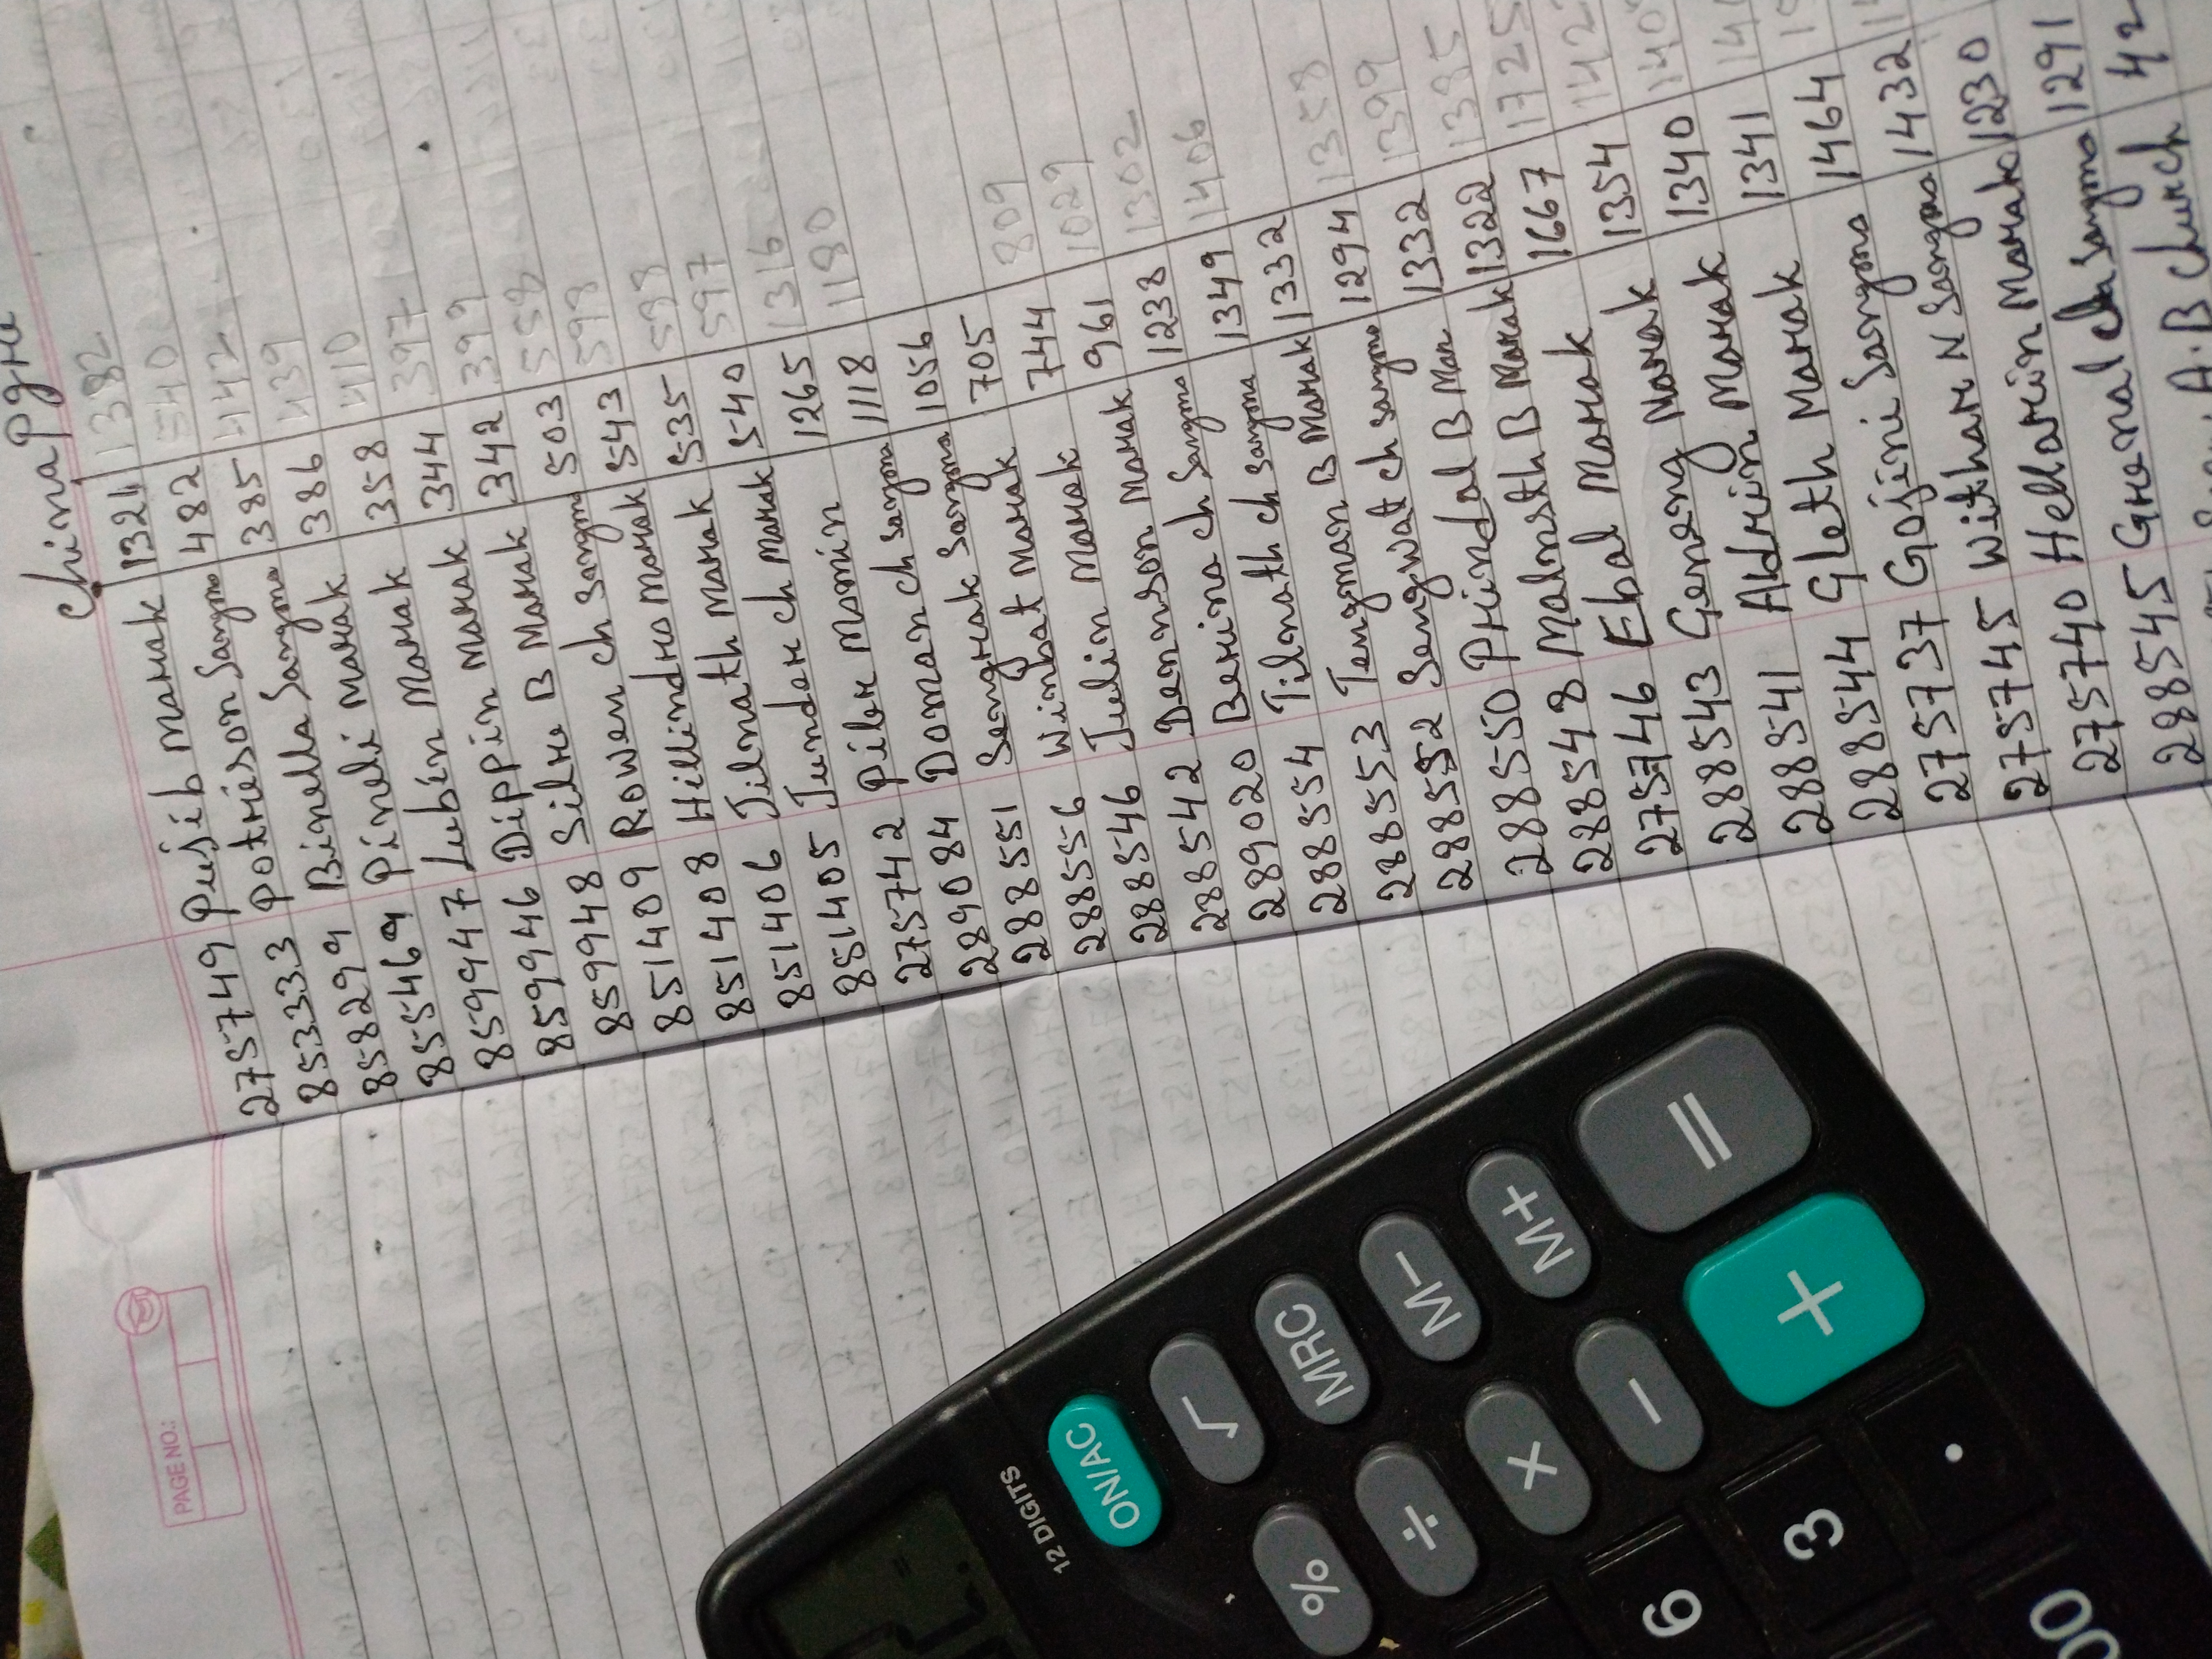 China Pgre
275749 Pusib Marak 1321 1382
853333 Potrieson Sangma 482 540
858299 Binella Sangma 385 442
855469 Pineli Marak 386 439
859947 Lubén Marak 358 410
859946 Dippin Marak 344 397
859948 Silne B Marak 342 399
851409 Rowen ch Sangma 503 558
851408 Hillindro Marak 543 598
851406 Jilnath Marak 535 588
851405 Jundar ch Marak 540 597
275742 Piler Momin 1265 1316
289084 Doman ch Sangma 1118 1180
288551 Sengrak Sangma 1056
288556 Winbat Marak 705
288546 Julin Marak 744 809
288542 Dennson Marak 961 1029
289020 Berina ch Sangma 1238 1302
288554 Tilnath ch Sangma 1349 1406
288553 Tengman B Marak 1332
288552 Sengwat ch Sangma 1294 1358
288550 Prindal B Mar 1332 1399
288548 Malnsth B Marak 1322 1385
275746 Ebal Marak 1667 1725
288543 Geneng Marak 1354 142
288541 Aldrin Marak 1340 140
288544 Gleth Marak 1341 14
275737 Gojini Sangma 1464
275745 Withar N Sangma 1432
275740 Hellarin Marak 1230
288545 Grenal ch Sangma 1291
A.B Church 42
PAGE NO.:
12 DIGITS
ON/AC
√
MRC
M−
M+
=
%
÷
×
−
+
6
3
.
00